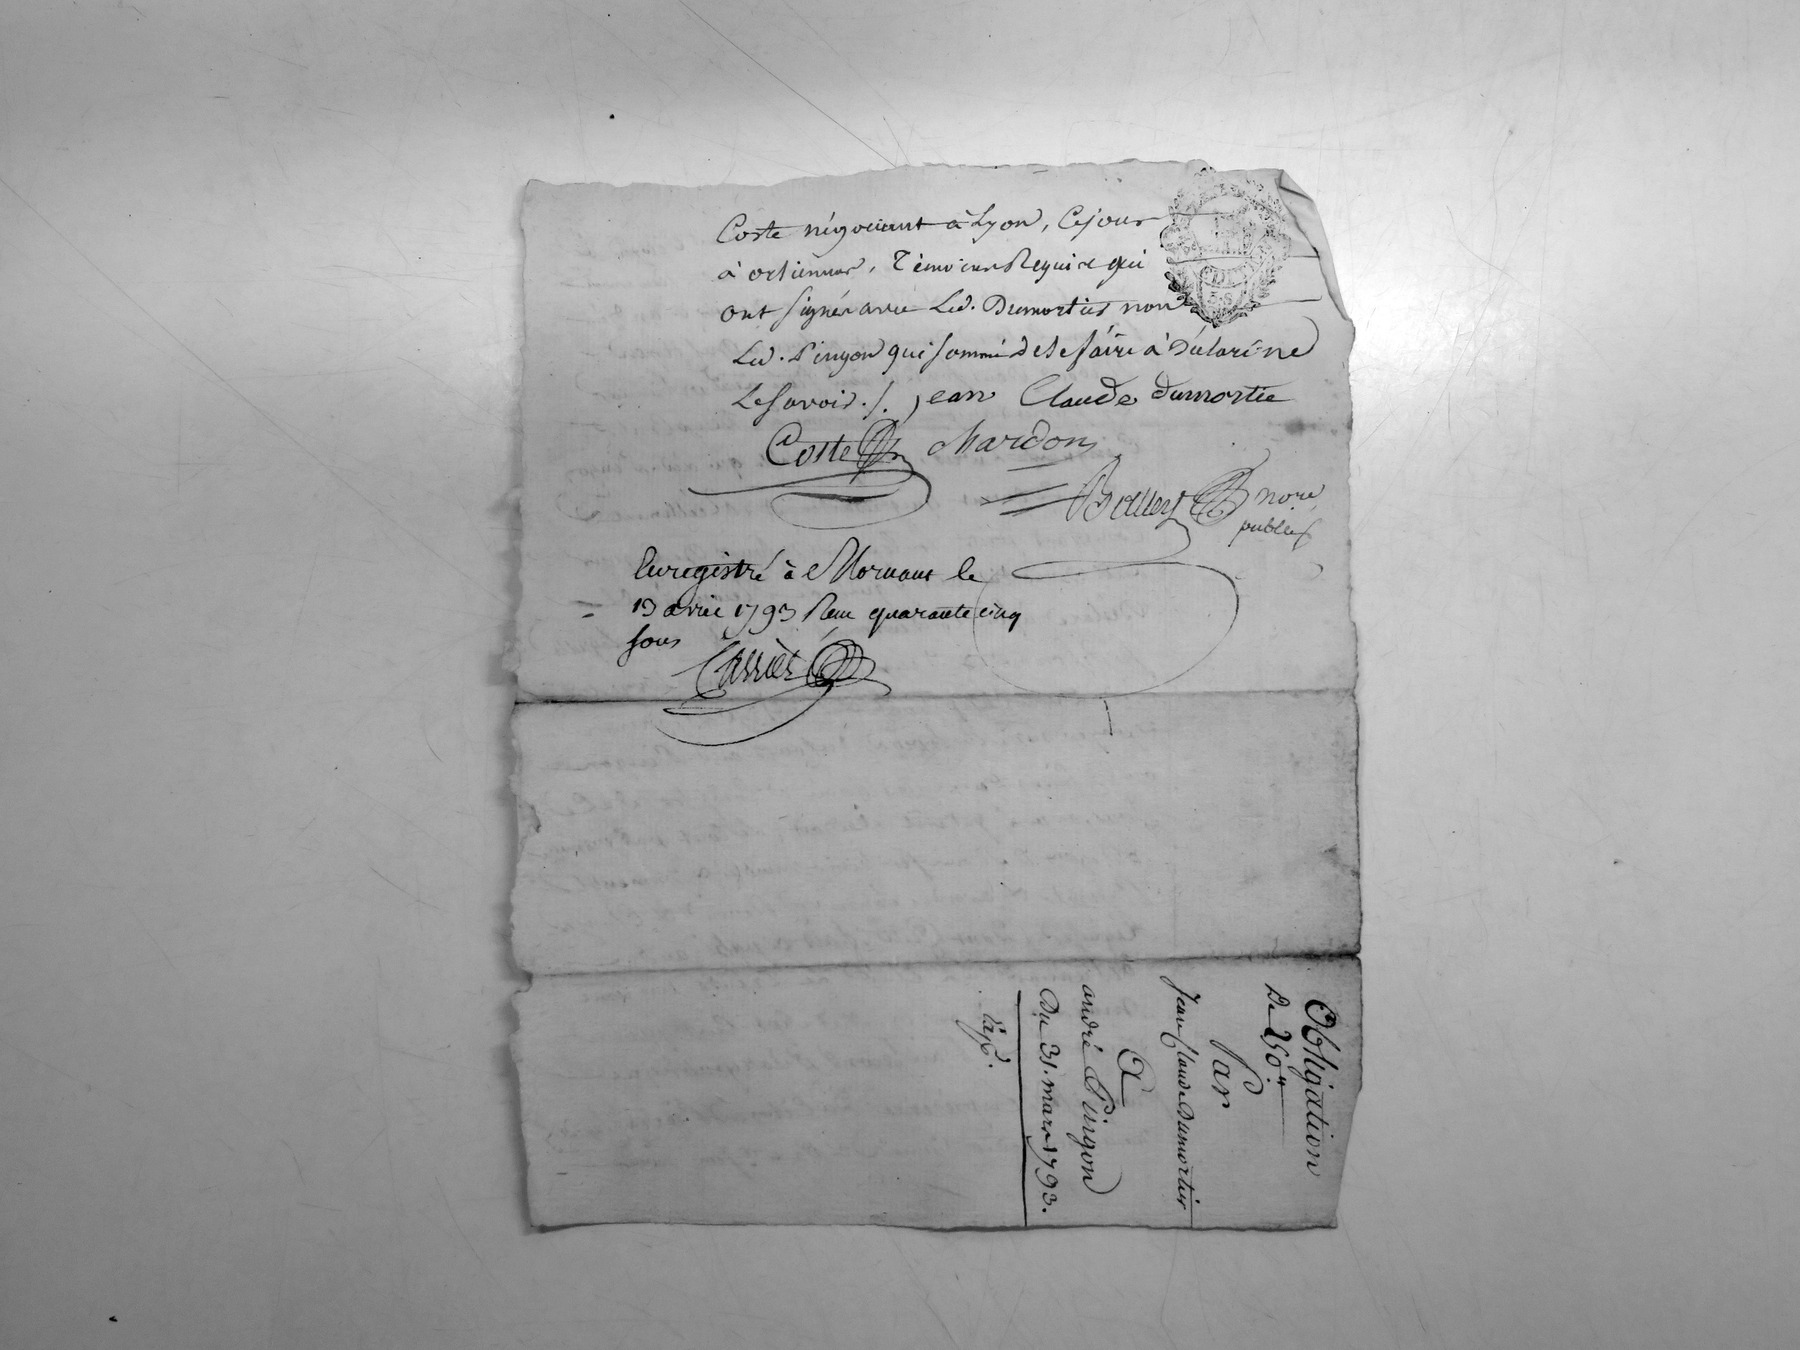 Coste négociant à Lyon, Cejour
à orlienas, Témoins Requis qui
ont signés avec Led. Dumortier non
Led. Pinyon qui sommé de le faire à déclaré ne
Le savoir./. jean Claude dumortie
Coste Mardon
nore
public
Enregistré à Mornant le
13 avril 1793 Reçu quarante cinq
sous
Carrier
Obligation
De 250ᵗᵗ
Par
Jean Claude Dumortier
A
andré Pinyon
Du 31. mars 1793.